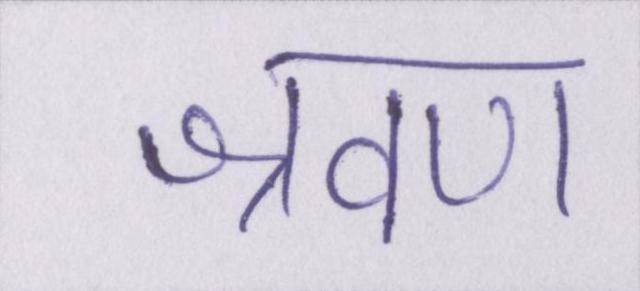 श्रवण